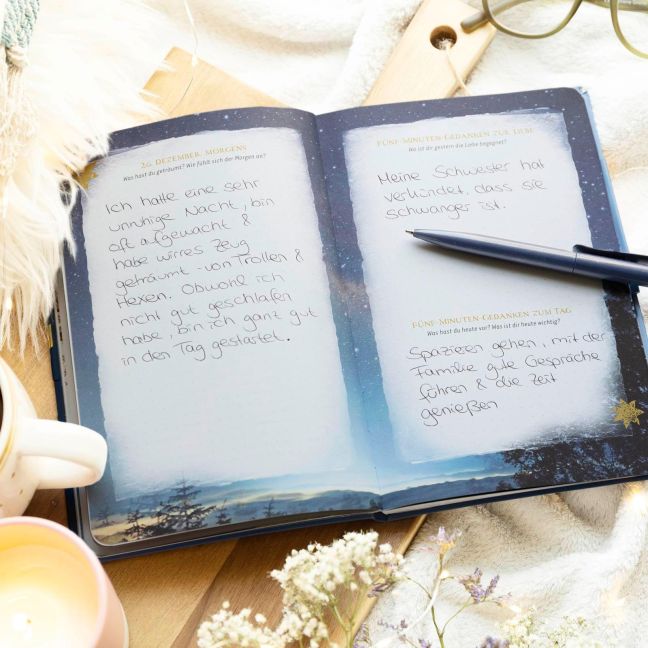 26. DEZEMBER, MORGENS
Was hast du geträumt? Wie fühlt sich der Morgen an?
Ich hatte eine sehr
unruhige Nacht, bin
oft aufgewacht &
habe wirres Zeug
geträumt - von Trollen &
Hexen. Obwohl ich
nicht gut geschlafen
habe, bin ich ganz gut
in den Tag gestartet.
FÜNF-MINUTEN-GEDANKEN ZUR LIEBE
Wo ist dir gestern die Liebe begegnet?
Meine Schwester hat
verkündet, dass sie
schwanger ist.
FÜNF-MINUTEN-GEDANKEN ZUM TAG
Was hast du heute vor? Was ist dir heute wichtig?
Spazieren gehen, mit der
Familie gute Gespräche
führen & die Zeit
genießen